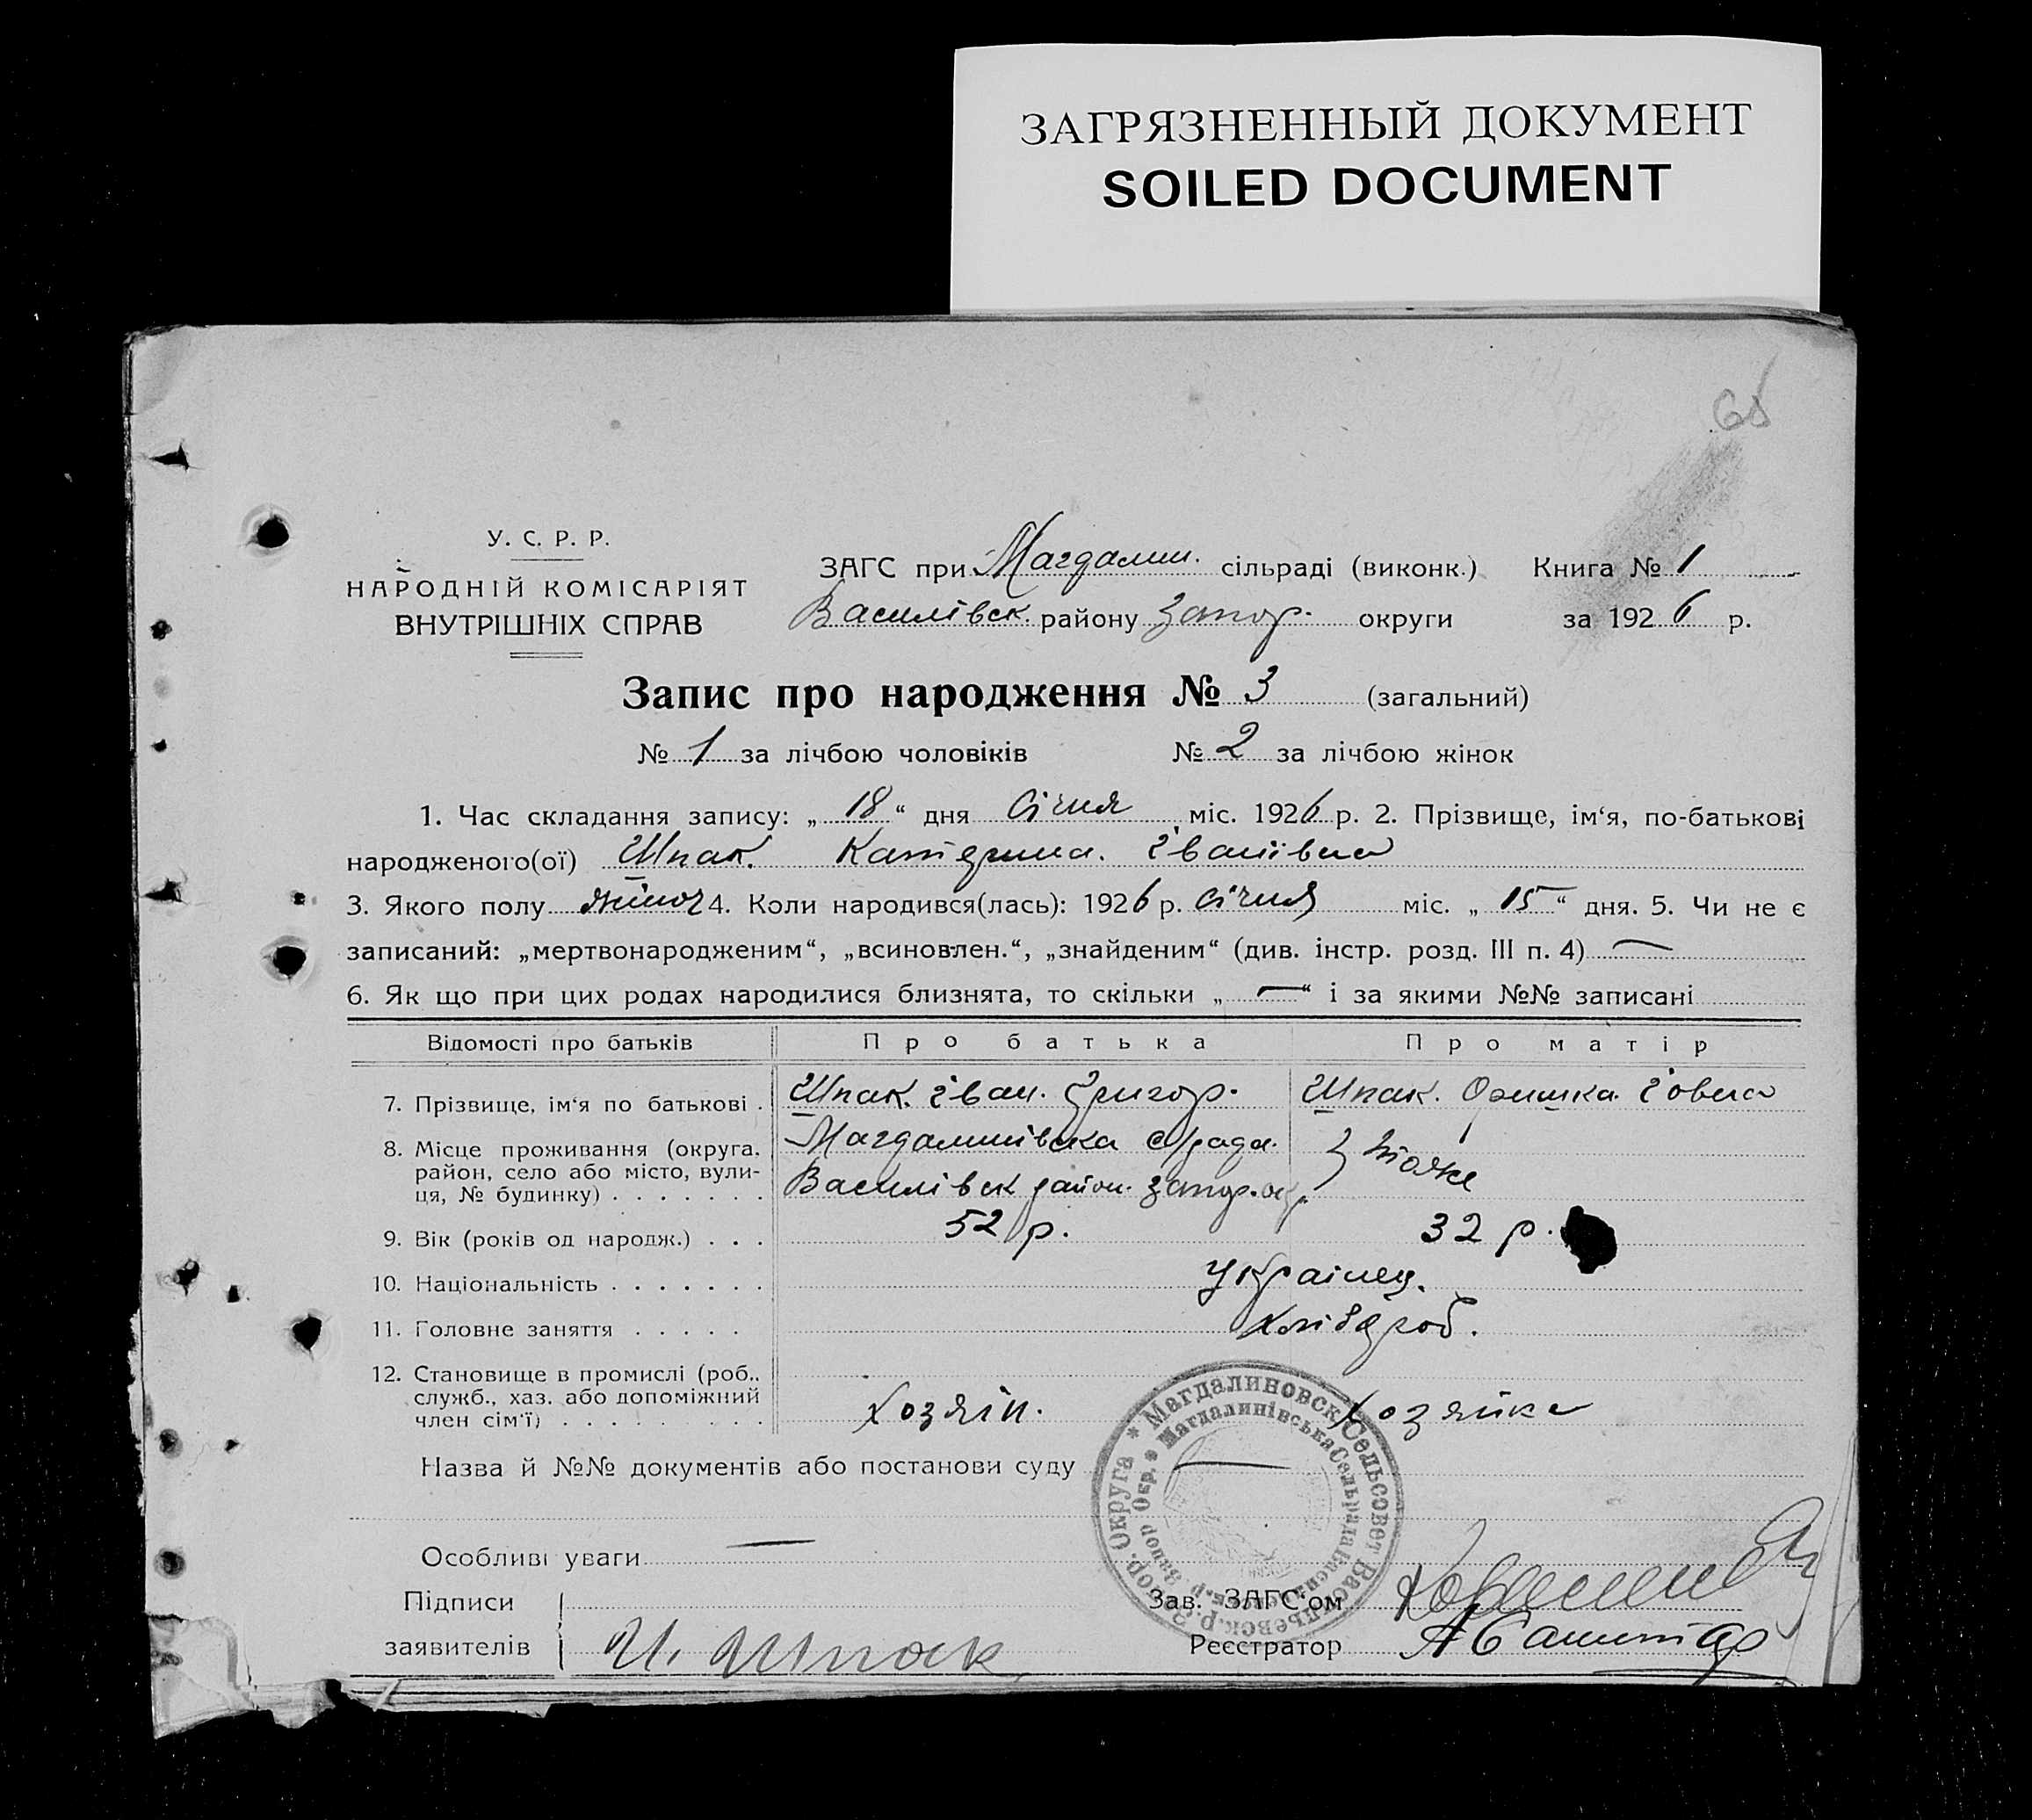 ЗАГРЯЗНЕННЫЙ ДОКУМЕНТ
SOILED DOCUMENT
У. С. Р. Р.
НАРОДНІЙ КОМІСАРІЯТ
ВНУТРІШНІХ СПРАВ
ЗАГС при Магдалин. сільраді (виконк.) Книга № 1
Василівск. району Запор. округи за 1926 р.
Запис про народження № 3 (загальний)
№ 1 за лічбою чоловіків № 2 за лічбою жінок
1. Час складання запису: „18“ дня Січня міс. 1926 р. 2. Прізвище, ім‘я, по-батькові
народженого(ої) Шпак. Катерина. Іванівна
3. Якого полу жіноч 4. Коли народився(лась): 1926 р. Січня міс. „15“ дня. 5. Чи не є
записаний: „мертвонародженим“, „всиновлен.“, „знайденим“ (див. інстр. розд. III п. 4) —
6. Як що при цих родах народилися близнята, то скільки „—“ і за якими №№ записані
Відомості про батьків Про батька Про матір
7. Прізвище, ім‘я по батькові . Шпак. Іван. Григор. Шпак. Оришка.
8. Місце проживання (округа, район, село або місто, вули-ця, № будинку) . . . . . . . Магдалинівска с/рада. Василівск район. Запор. окр. тоже
9. Вік (років од народж.) . . . 52 р. 32 р.
10. Національність . . . . . . . Українец.
11. Головне заняття . . . . . Хлібороб.
12. Становище в промислі (роб., служб., хаз. або допоміжний член сім‘ї) . . . . . . . . Хозяін. Хозяйка
Назва й №№ документів або постанови суду —
Магдалиновск. Сельсовет Васильевск. р. Запор. Округа
Магдалинівська Сельрада Василівськ. р. Запор Окр.
Особливі уваги —
Підписи
заявителів И. Шпак
Зав. ЗАГС‘ом
Реєстратор